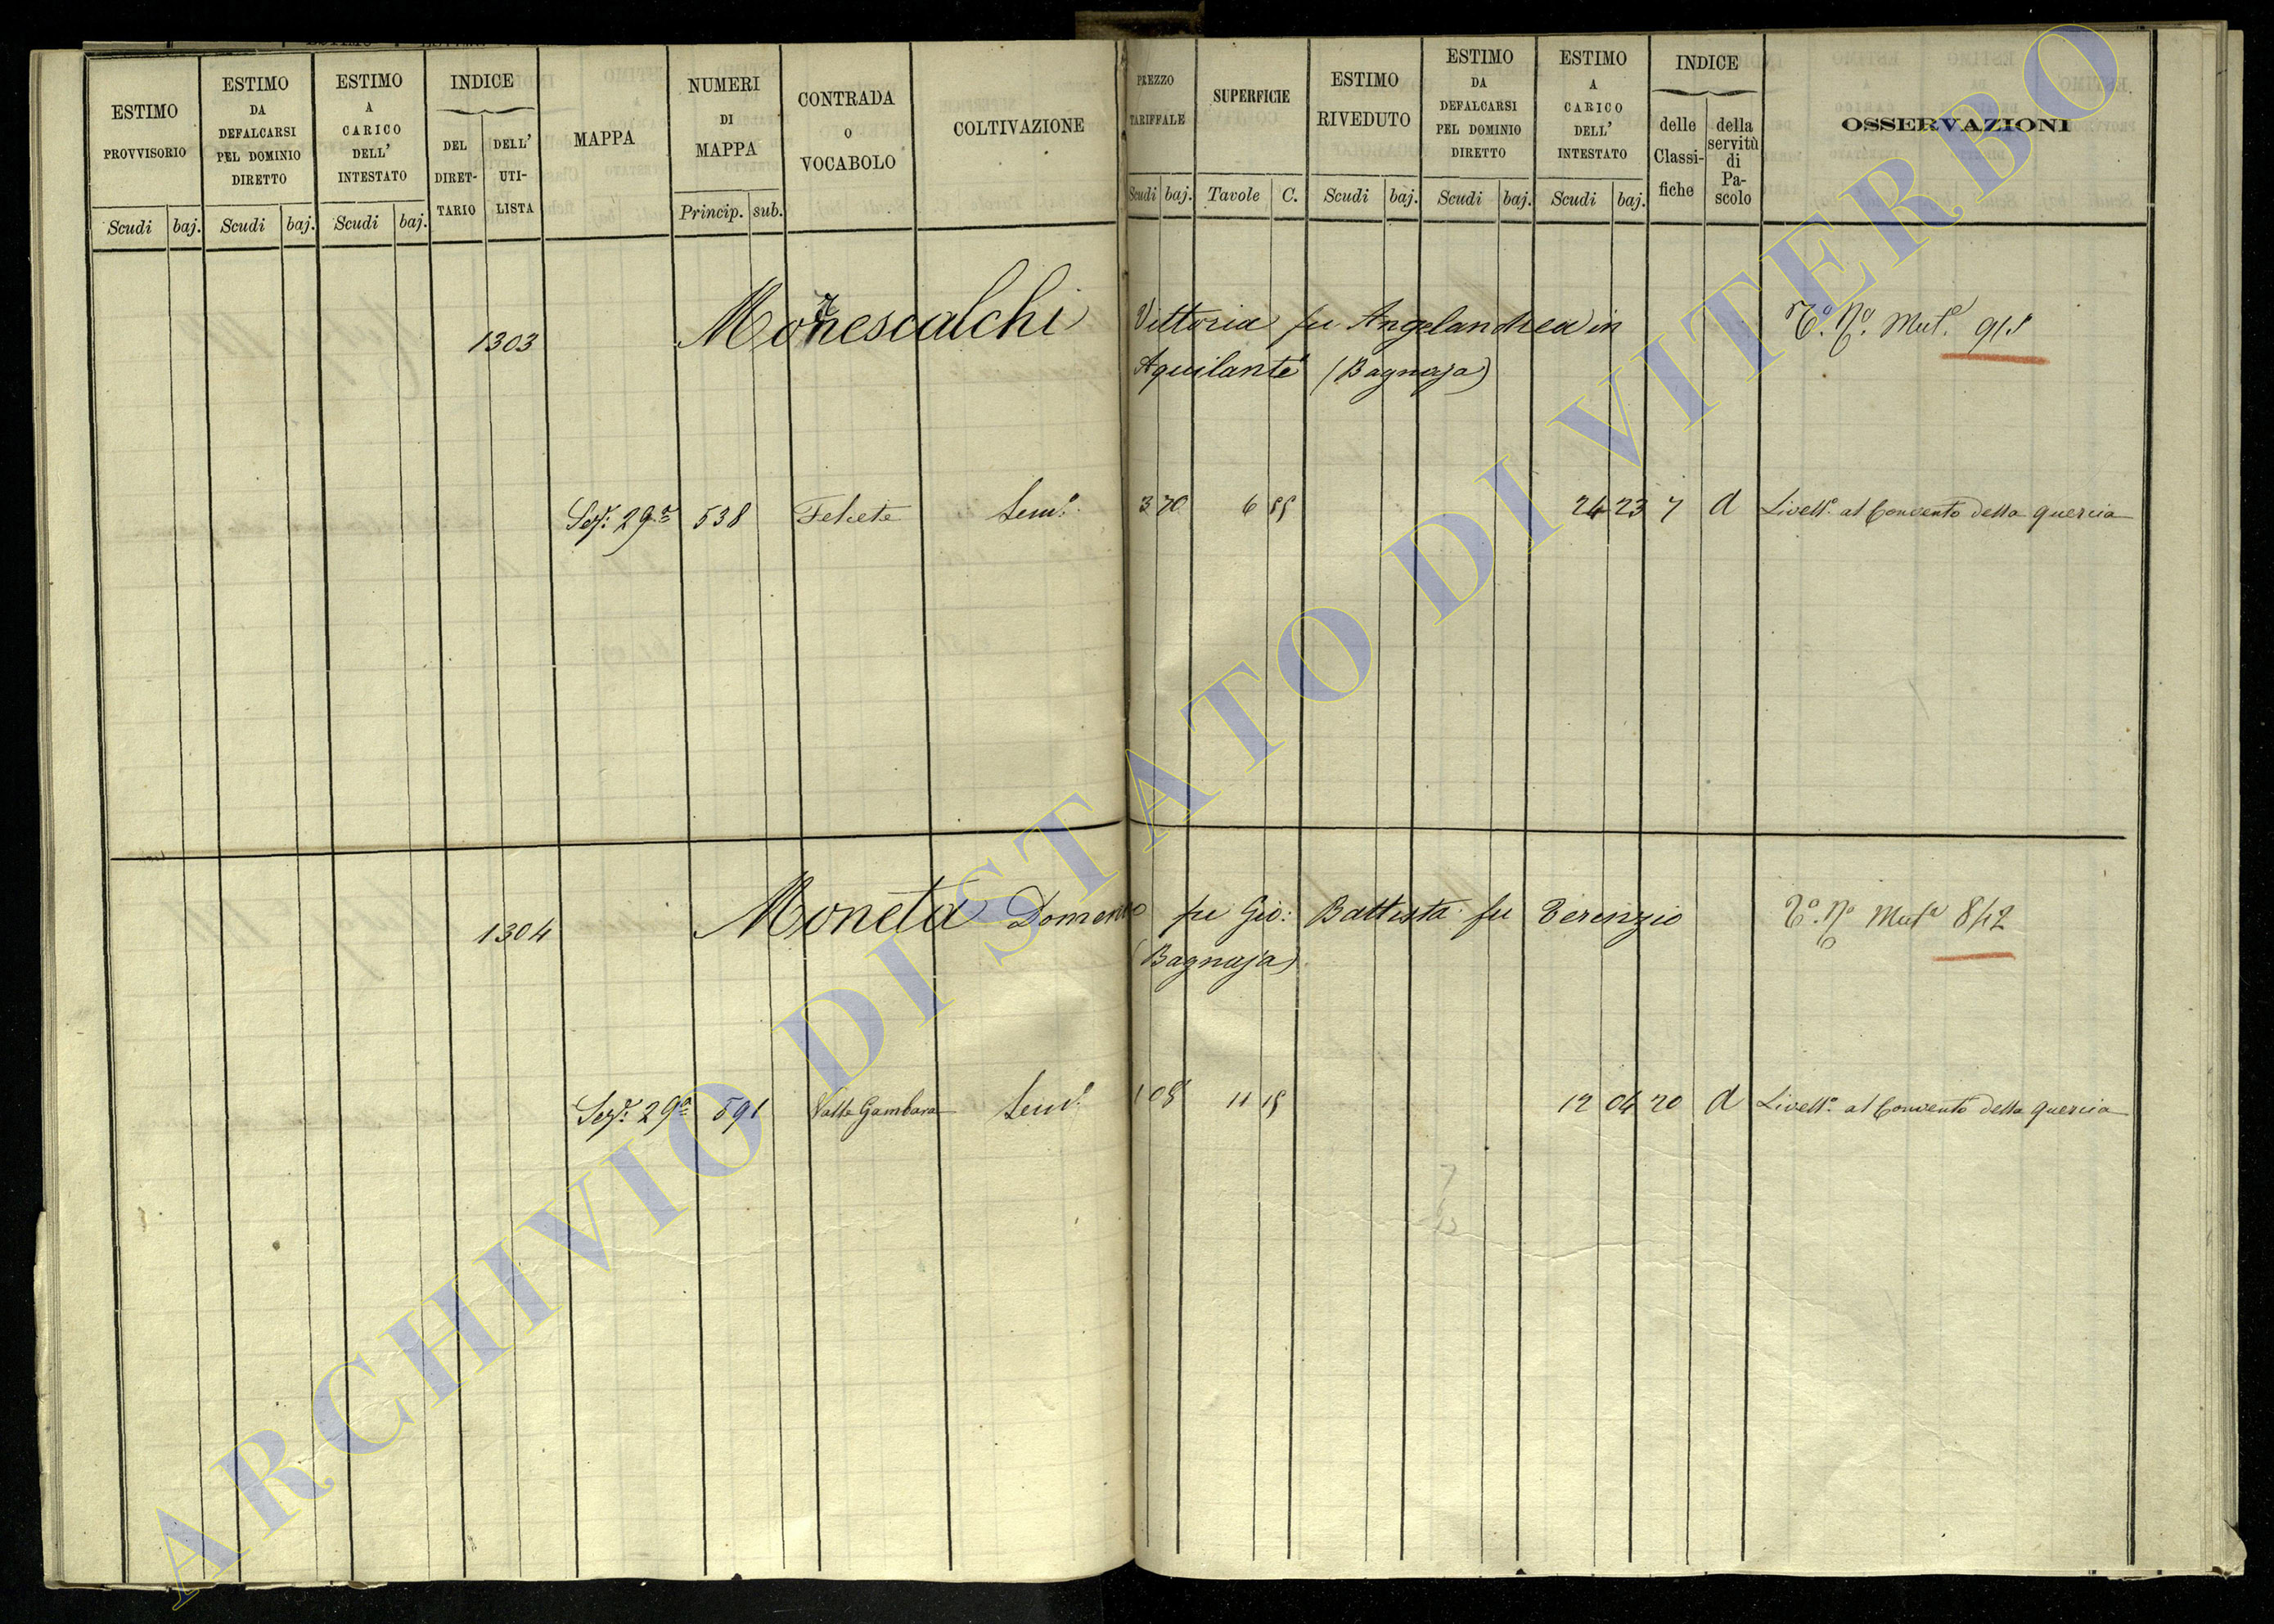 ESTIMO PROVVISORIO
ESTIMO DA DEFALCARSI PEL DOMINIO DIRETTO
ESTIMO A CARICO DELL' INTESTATO
INDICE
DEL DIRET-TARIO
DELL' UTI-LISTA
MAPPA
NUMERI DI MAPPA
CONTRADA O VOCABOLO
COLTIVAZIONE
Scudi baj. Scudi baj. Scudi baj. Princip. sub.
PREZZO TARIFFALE
SUPERFICIE
ESTIMO RIVEDUTO
ESTIMO DA DEFALCARSI PEL DOMINIO DIRETTO
ESTIMO A CARICO DELL' INTESTATO
INDICE
delle Classi-fiche
della servitù di Pa-scolo
OSSERVAZIONI
Scudi baj. Tavole C. Scudi baj. Scudi baj. Scudi baj.
1303 Vittoria fu Angelandrea in
Aquilante (Bagnaja)
Sezе 29a 538 Felcete Semo 3 70 6 55 24 23 7 d Livello al Convento della Quercia
1304 Moneta Domenico fu Gio: Battista fu Terenzio To. No. Muta 842
(Bagnaja)
29a 591 Valle Gambara Semo 1 08 11 15 12 04 20 d Livello al Convento della Quercia
ARCHIVIO DI STATO DI VITERBO